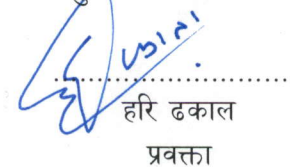 हरि ढकाल
प्रवक्ता